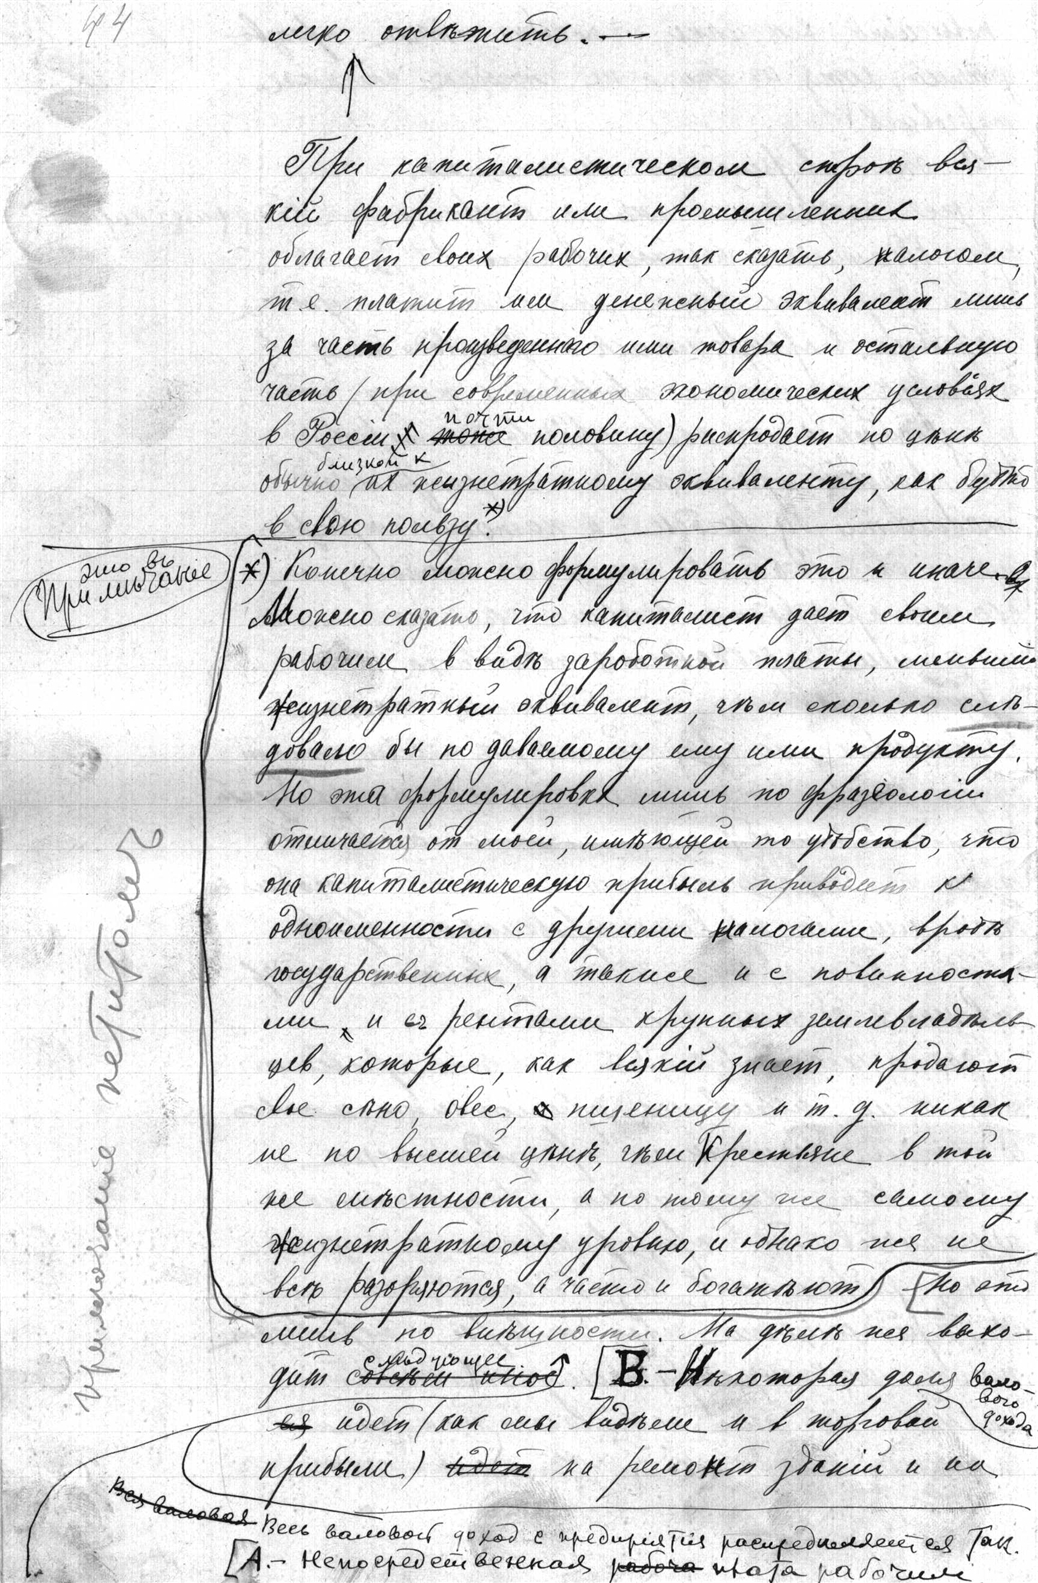 44
легко отвѣтить. —
При капиталистическом строѣ вся-
кій фабрикант или промышленник
облагает своих рабочих, так сказать, налогом,
т.е. платит им денежный эквивалент лишь
за часть произведеннаго ими товара и остальную
часть (при современных экономических условіях
в Россіи почти
тоже половину) распродает по цѣнѣ
близкой к
обычно их жизнетратному эквиваленту, как будто
в свою пользу.*)
это въ
Примѣчаніе
*) Конечно можно формулировать это и иначе.
Можно сказать, что капиталист дает своим
рабочим в видѣ заработной платы, меньший
жизнетратный эквивалент, чѣм сколько слѣ-
довало бы по даваемому ему ими продукту.
Но эта формулировка лишь по фразеологіи
отличается от моей, имѣющей то удобство, что
она капиталистическую прибыль приводит к
одноименности с другими налогами, вродѣ
государственных, а также и с повинностя-
ми и съ рентами крупных землевладѣль-
цев, которые, как всякій знает, продают
свое сѣно, овес, пшеницу и т. д. никак
не по высшей цѣнѣ, чѣм крестьяне в той
же мѣстности, а по тому же самому
жизнетратному уровню, и однако же не
всѣ разоряются, а часто и богатѣют
[Но это
лишь по внѣшности. На дѣлѣ же выхо-
слѣдующее
дит совсѣм иное. [В.- Нѣкоторая доля вало-
вого
дохода
ея идет (как мы видѣли и в торговой
прибыли) идет на ремонт зданій и на
примѣчаніе петитомъ
Вся валовая
Весь валовой доход с предпріятія распредѣляется так.
[А.- Непосредственная рабоча плата рабочим